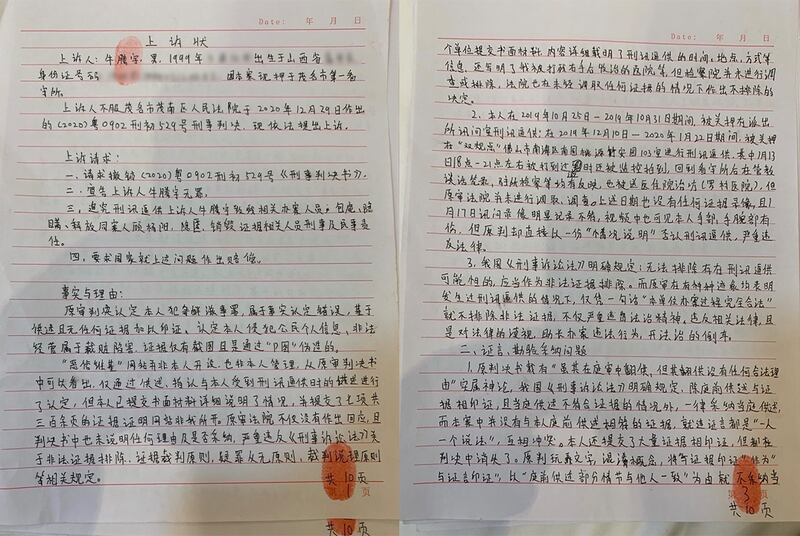 Date: 年 月 日
上诉状
上诉人：牛腾宇，男，1999年 出生于山西省
身份证号码 因本案现押于茂名市第一看
守所。
上诉人不服茂名市茂南区人民法院于2020年12月29日作出
的（2020）粤0902刑初529号刑事判决，现依法提出上诉。
上诉请求：
一、请求撤销（2020）粤0902刑初529号《刑事判决书》。
二、宣告上诉人牛腾宇无罪。
三、追究刑讯逼供上诉人牛腾宇致残相关办案人员；包庇、隐
瞒、释放同案人顾杨阳、陈艮、销毁证据相关人员刑事及民事责
任。
四、要求国家就上述问题作出赔偿。
事实与理由：
原审判决认定本人犯寻衅滋事罪，属于事实认定错误，基于
供述且无任何证据和比印证。认定本人侵犯公民个人信息、非法
经营属于栽赃陷害，证据仅有截图且是通过“P图”伪造的。
网站并非本人开设，也非本人管理，从原审判决书
中可以看出，仅通过供述、指认与本人受到刑讯逼供时的 进行
了认定，但本人已提交书面材料详细说明了情况，并提交了七项共
三百余页的证据证明网站非我所开。原审法院不仅没有作出回应，且
判决书中也未说明任何理由及是否采纳，严重违反《刑事诉讼法》关
于非法证据排除、证据裁判原则、疑罪从无原则、裁判说理原则
等相关规定。
共10页
1 页
共10页
Date: 年 月 日
个单位提交书面材料，内容详细载明了刑讯逼供的时间、地点、方式等
信息，还写明了我被打致右手后救治的医院等，但检察院并未进行调
查或排除，法院也在未经调取任何证据的情况下作出不排除的
决定。
2、本人在2019年10月25日—2019年10月31日期间，被关押在派出
所讯问室刑讯逼供；在2019年12月10日—2020年1月22日期间，被关押
在“双规点”佛山市南海区南国桃源 园103室进行刑讯逼供，其中1月13
日18点—21点左右被打到 时还被监控拍到，回到看守所后在管教
谈话笔录、驻所检察等均有反映，也被送医住院治疗（罗村医院），但
原审法院并未进行调取、调查。上述日期也没有任何证据录像，且1
月17日讯问录像明显记录不符，视频中也可见本人手部、手腕部有
伤，但原判却直接以一份“情况说明”否认刑讯逼供，严重违
反法律。
3、我国《刑事诉讼法》明确规定：无法排除存在刑讯逼供
可能性的，应当作为非法证据排除。而原审在有种种迹象均表明
发生过刑讯逼供的情况下，仅凭一句话“本单位办案过程完全合法”
就不排除非法证据，不仅严重违背法治精神，违反相关法律，且
是对法律的漠视，助长办案违法行为，开法治的倒车。
二、证言、勘验采纳问题
1、原判决书载有“虽其在庭审中翻供，但其翻供没有任何合理
理由”实属谬论，我国《刑事诉讼法》明确规定，除庭前供述与证
据相印证，且当庭供述不符合证据的情况外，一律采纳当庭供述，
而本案中并没有与本人庭前供述相符的证据，就连证言都是“一人
一个说法”，互相冲突。本人还提交了大量证据相印证，但却在
判决中消失了。原判玩弄文字，混淆概念，将与证据印证“作为”
与证言印证”，以“庭前供述部分情节与他人一致”为由就不采纳当
第 3 页
共10页